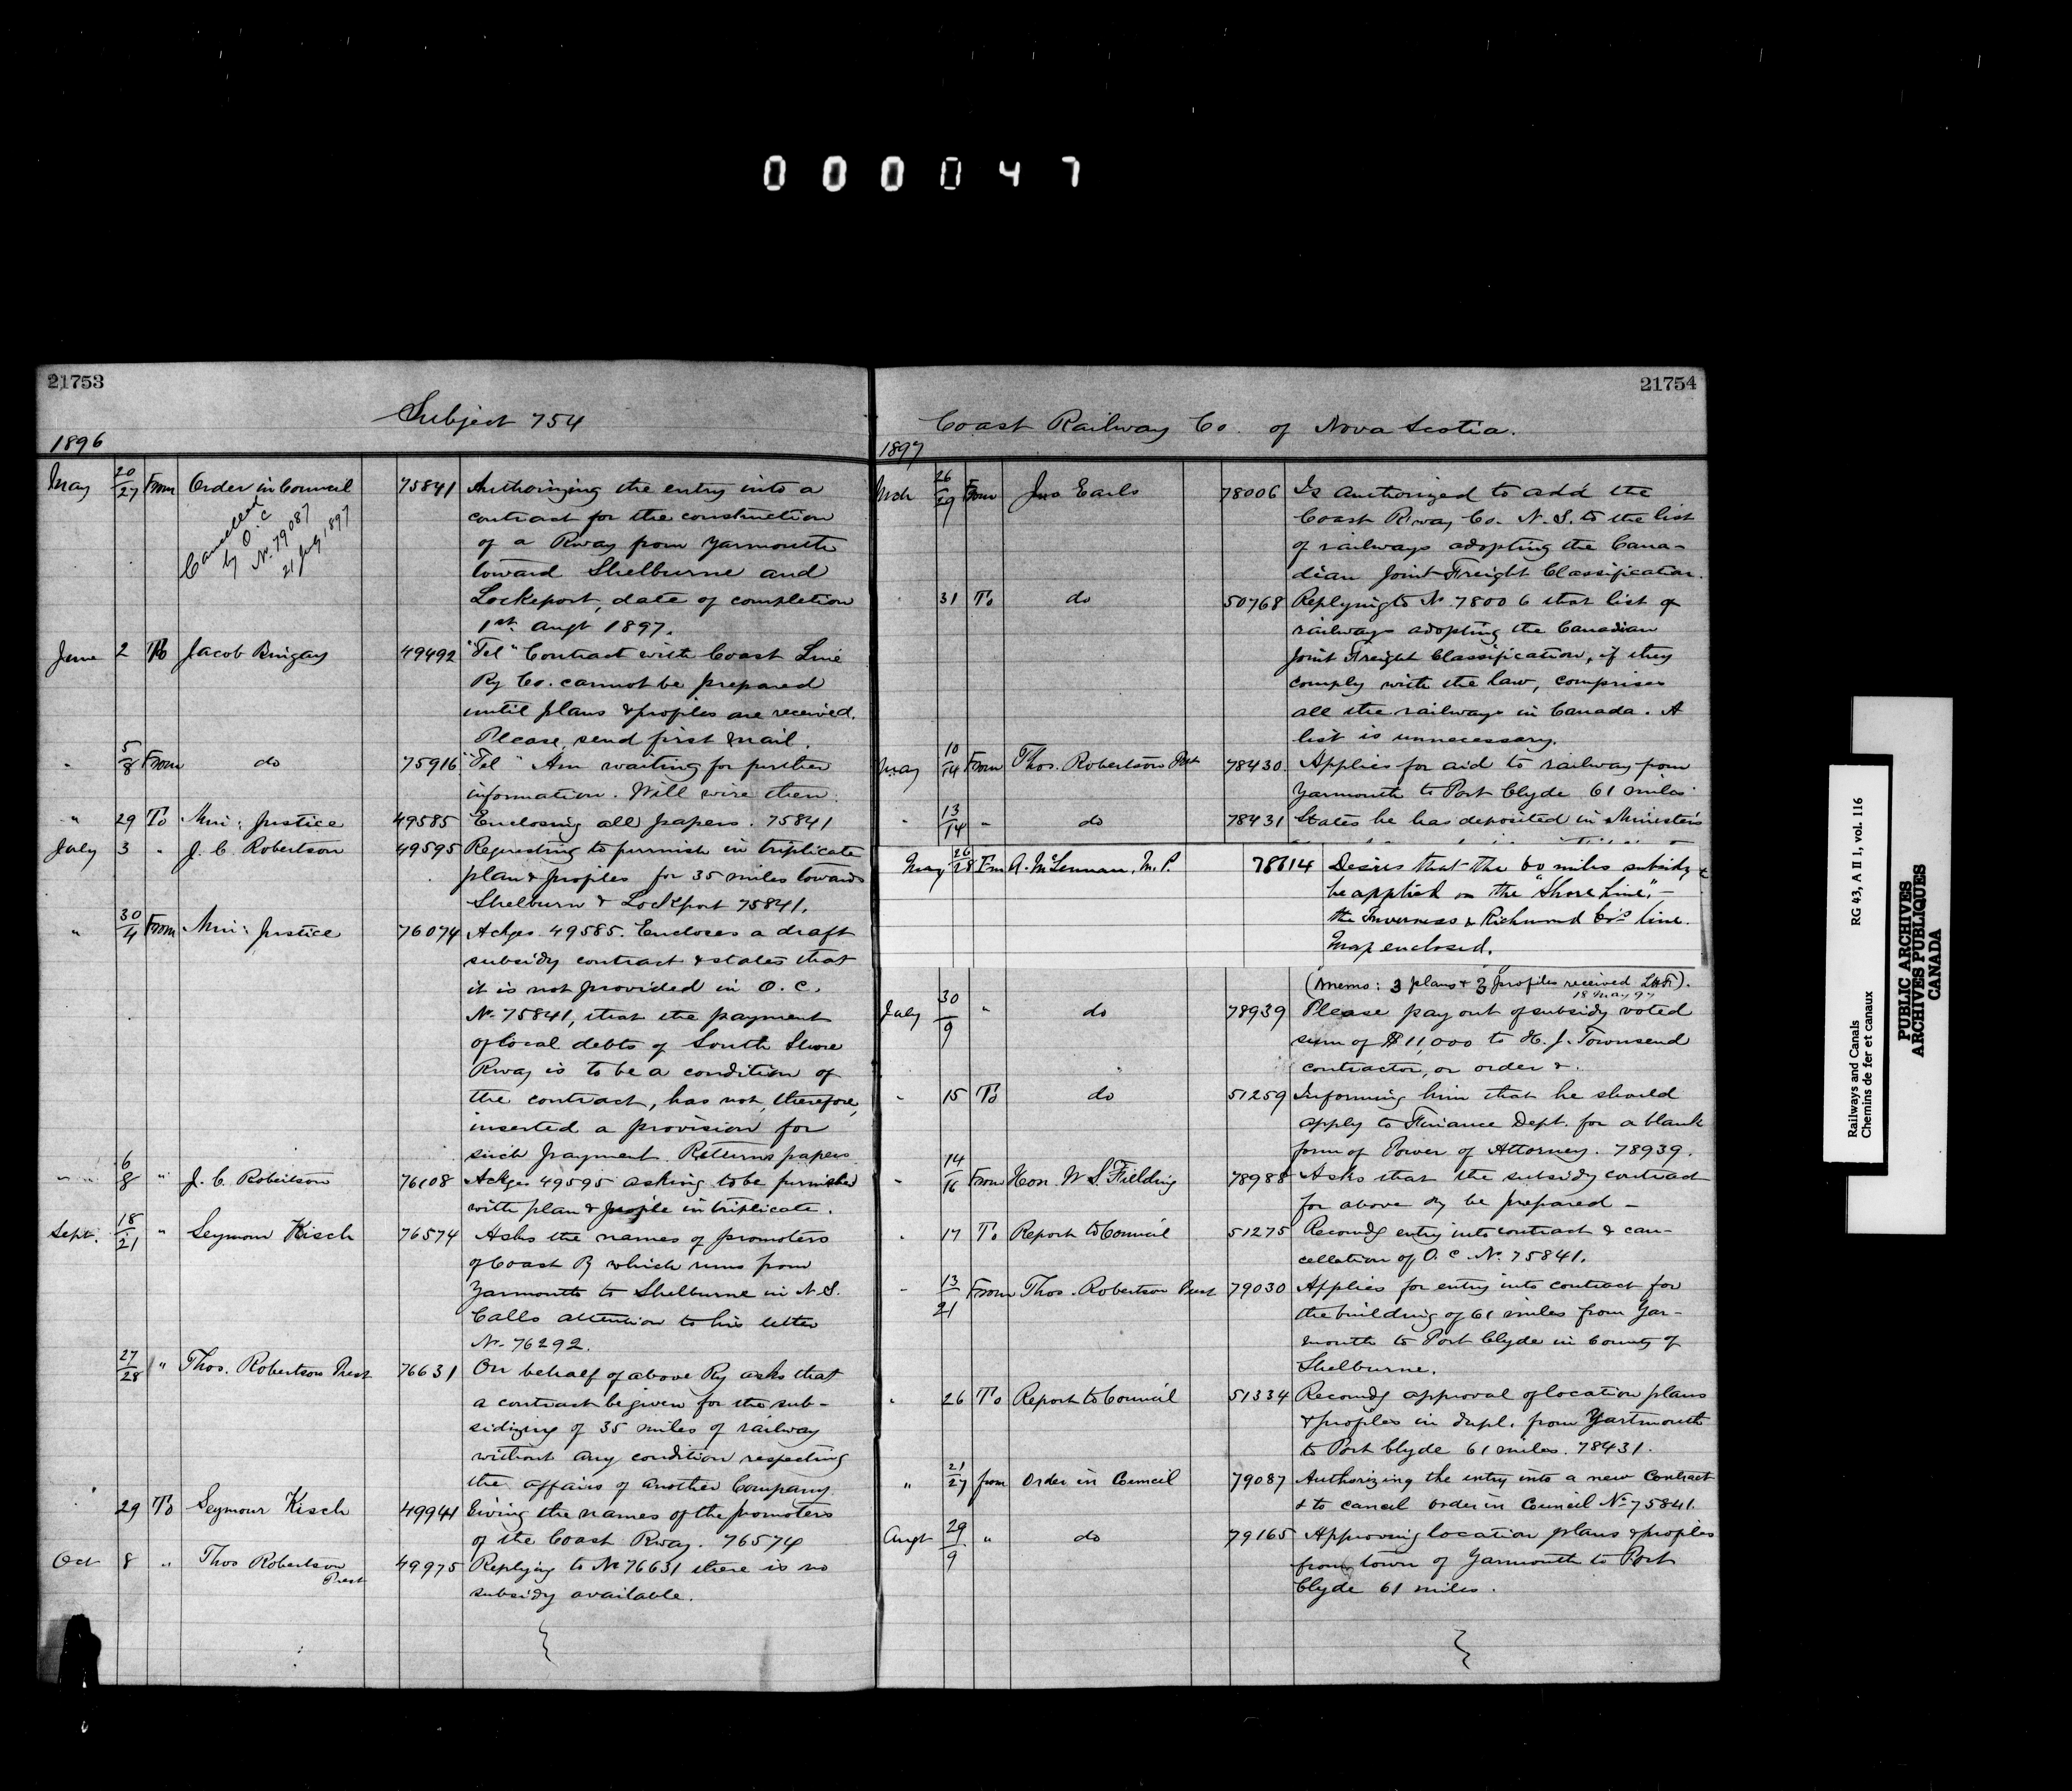 000047
21753
Subject 754
1896
May 20/27 From Order in Council 75841 Authorizing the entry into a
contract for the construction
of a Rway from Yarmouth
toward Shelburne and
Lockeport, date of completion
1st Augt 1897.
Cancelled
by O.C
No. 79087
21 July 1897
June 2 To Jacob Bingay 49492 "Tel" Contract with Coast Line
Ry Co. cannot be prepared
until plans & profiles are received.
Please send first mail.
" 5/8 From do 75916 "Tel" Am waiting for further
information. Will wire then.
" 29 To Min: Justice 49585 Enclosing all papers. 75841
July 3 " J. C. Robertson 49595 Requesting to furnish in triplicate
plan & profiles for 35 miles towards
Shelburn & Lockport 75841.
" 30/4 From Min: Justice 76074 Ackges 49585. Encloses a draft
subsidy contract & states that
it is not provided in O.C.
No. 75841, that the payment
of local debts of South Shore
Rway is to be a condition of
the contract, has not, therefore,
inserted a provision for
such payment. Returns papers
" " 6/8 " J. C. Robertson 76108 Ackges 49595 asking to be furnished
with plan & profile in triplicate.
Sept. 18/21 " Seymour Kisch 76574 Asks the names of promoters
of Coast Ry which runs from
Yarmouth to Shelburne in N.S.
Calls attention to his letter
No. 76292.
27/28 " Thos. Robertson Prest 76631 On behalf of above Ry asks that
a contract be given for the sub-
sidizing of 35 miles of railway
without any condition respecting
the affairs of another Company.
" 29 To Seymour Kisch 49941 Giving the names of the promoters
of the Coast Rway. 76574
Oct 8 " Thos Robertson Prest 49975 Replying to No 76631 there is no
subsidy available.
21754
Coast Railway Co. of Nova Scotia.
1897
Mch 26/29 From Jno Earls 78006 Is authorized to add the
Coast Rway Co. N.S. to the list
of railways adopting the Cana-
dian Joint Freight Classification.
31 To do 50768 Replying to No 78006 that list of
railways adopting the Canadian
Joint Freight Classification, if they
comply with the law, comprises
all the railways in Canada. A
list is unnecessary.
May 10/14 From Thos. Robertson Prest 78430 Applies for aid to railway from
Yarmouth to Port Clyde 61 miles
" 13/14 " do 78431 States he has deposited in Minister's
May 26/28 Fm A. McLennan, M.P. 78614 Desires that the 60 miles subsidy
be applied on the "Shore Line", -
the Inverness & Richmond Co's line.
Map enclosed.
(Memo: 3 plans & 3 profiles received
18 May 97
July 30/9 " do 78939 Please pay out of subsidy voted
sum of $11,000 to H. J. Townsend
contractor, or order &.
" 15 To do 51259 Informing him that he should
apply to Finance Dept. for a blank
form of Power of Attorney. 78939.
" 14/16 From Hon. W S. Fielding 78988 Asks that the subsidy contract
for above Ry be prepared -
" 17 To Report to Council 51275 Recomdg entry into contract & can-
cellation of O.C No. 75841.
" 13/21 From Thos. Robertson Prest 79030 Applies for entry into contract for
the building of 61 miles from Yar-
mouth to Port Clyde in County of
Shelburne.
" 26 To Report to Council 51334 Recomdg approval of location plans
& profiles in dupl. from Yartmouth
to Port Clyde 61 miles. 78431.
" 21/27 from Order in Council 79087 Authorizing the entry into a new Contract
& to cancel order in Council No 75841.
Augt 29/9 " do 79165 Approving location plans & profiles
from town of Yarmouth to Port
Clyde 61 miles.
Railways and Canals RG 43, A II 1, vol. 116
Chemins de fer et canaux
PUBLIC ARCHIVES
ARCHIVES PUBLIQUES
CANADA